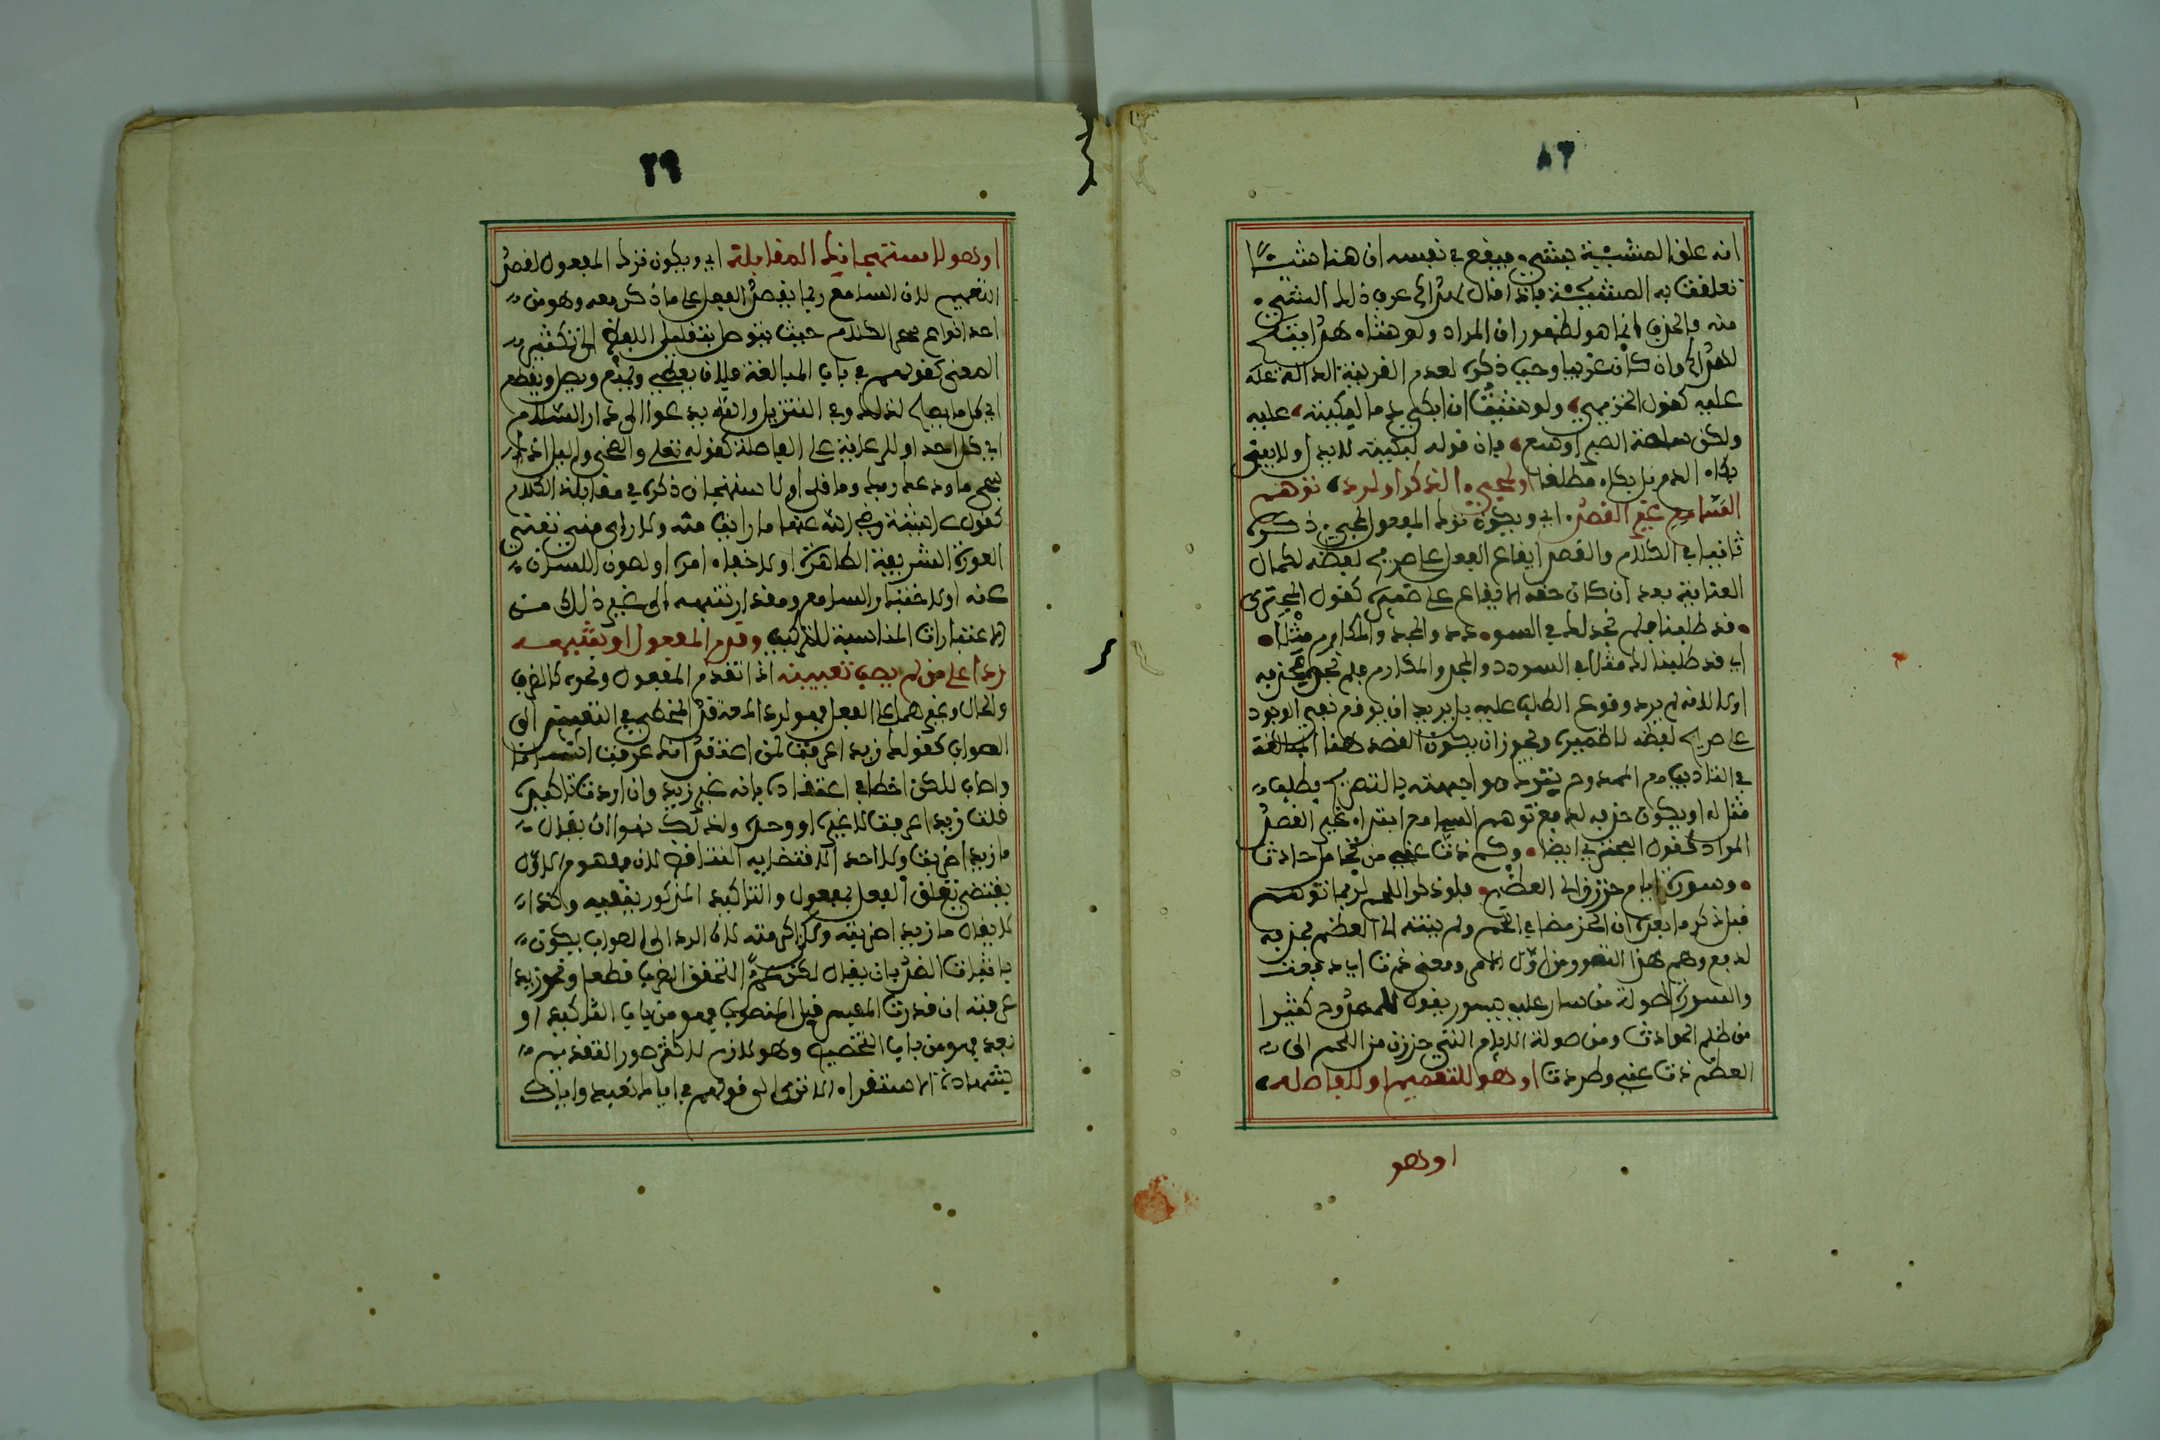 ٨٦
انه علق المشيئة بشيء فيقع في نفسه ان هنا شيئا
تعلقت به المشيئة فاذا قال لهداكم عرف ذلك الشيء
منه والحذف انما هو لظهور ان المراد ولو شاء هدايتكم
لهداكم وان كان غريبا وجب ذكره لعدم القرينة الدالة عله
عليه كقول الخزيمي ولو شئت ان ابكي دما لبكيته عليه
ولكن ساحة الصبر اوسع فان قوله لبكيته لا يدل ولا ينفي
بكاء الدم بل بكاء مطلقا او لمجيء الذكر او لرد توهم
السامع غير القصد اي ويكون ترك المفعول لمجيء ذكره
ثانيا في الكلام والقصد ايقاع الفعل على صريح لفظه لكمال
العناية بعد ان كان حقه الايقاع على ضميره كقول البحتري
قد طلبنا فلم نجد لك في السو دد والمجد والمكارم مثلا
اي قد طلبنا لك مثلا في السودد والمجد والمكارم فلم نجده فحذفه
اولا لانه لم يرد وقوع الطلب عليه بل يريد ان يوقع نفي الوجود
على صريح لفظه لا ضميره ويجوز ان يكون القصد هنا المبالغة
في التاديب مع الممدوح بترك مواجهته بالتصريح بطلب
مثل له او يكون حذفه لدفع توهم السامع ابتداء غير القصد
المراد كقول البحتري ايضا وكم ذدت عني من تحامل حادث
وسورة ايام حززن الى العظم فلو ذكر اللحم لربما توهم
قبل ذكر ما بعده ان الحز مضى في اللحم ولم ينته الى العظم فحذفه
لدفع وهم هذا التصور من اول الامر ومعنى ذدت اي دفعت
والسورة الصولة من سار عليه يسور يقول للممدوح كثيرا
من ظلم الحوادث ومن صولة الايام التي حززن من اللحم الى
العظم ذدت عني وطردت او هو للتعميم او للفاصله
او هو
٢٩
او هو لاستهجانك المقابلة اي ويكون ترك المفعول لقصد
التعميم لان السامع ربما يقصر الفعل على ما ذكر معه وهو من
احد انواع سحر الكلام حيث يتوصل بتقليل اللفظ الى تكثير
المعنى كقولهم في باب المبالغة فلان يعطي ويمنع ويصل ويقطع
اي كل ما يصلح لذلك وفي التنزيل والله يدعوا الى دار السلام
اي كل احد او للرعاية على الفاصلة كقوله تعلى والضحى والليل اذا
سجى ما ودعك ربك وما قلى او لاستهجان ذكره في مقابلة الكلام
كقول عايشة رضي الله عنها ما رايت منه ولا راى مني تعني
العورة الشريفة الطاهرة او لاخفاء امره او لصون اللسان
عنه او لاختبار السامع ومقدار تنبهه الى غير ذلك من
الاعتبارات المناسبة للتركيب وقدم المفعول او شبهه
ردا على من لم يصب تعيينه اذا تقدم المفعول ونحوه كالظرف
والحال وغيرهما على الفعل فهو لرد المعتقد المخطي في التعيين الى
الصواب كقولك زيدا عرفت لمن اعتقد انك عرفت انسانا
واصاب لكن اخطا في اعتقاده بانه غير زيد وان اردت تاكيده
قلت زيدا عرفت لا غيره او وحده ولذلك نهوا ان يقال
ما زيدا ضربت ولا احد الاقتضايه التناقض لان مفهوم الاول
يقتضي تعلق الفعل بمفعول والتاكيد المذكور ينفيه وكذا
لا يقال ما زيدا ضربته ولكن اكرمته لان الرد الى الصواب يكون
باثبات الضرب بان يقال لكن عمرا لتحقق الضرب قطعا ونحو زيدا
عرفته ان قدرت المفسر قبل المنصوب فهو من باب التاكيد او
بعده فهو من باب التخصيص وهو لازم لاكثر صور التقديم
بشهادة الاستقراء الا ترى الى قولهم في اياك نعبد واياك